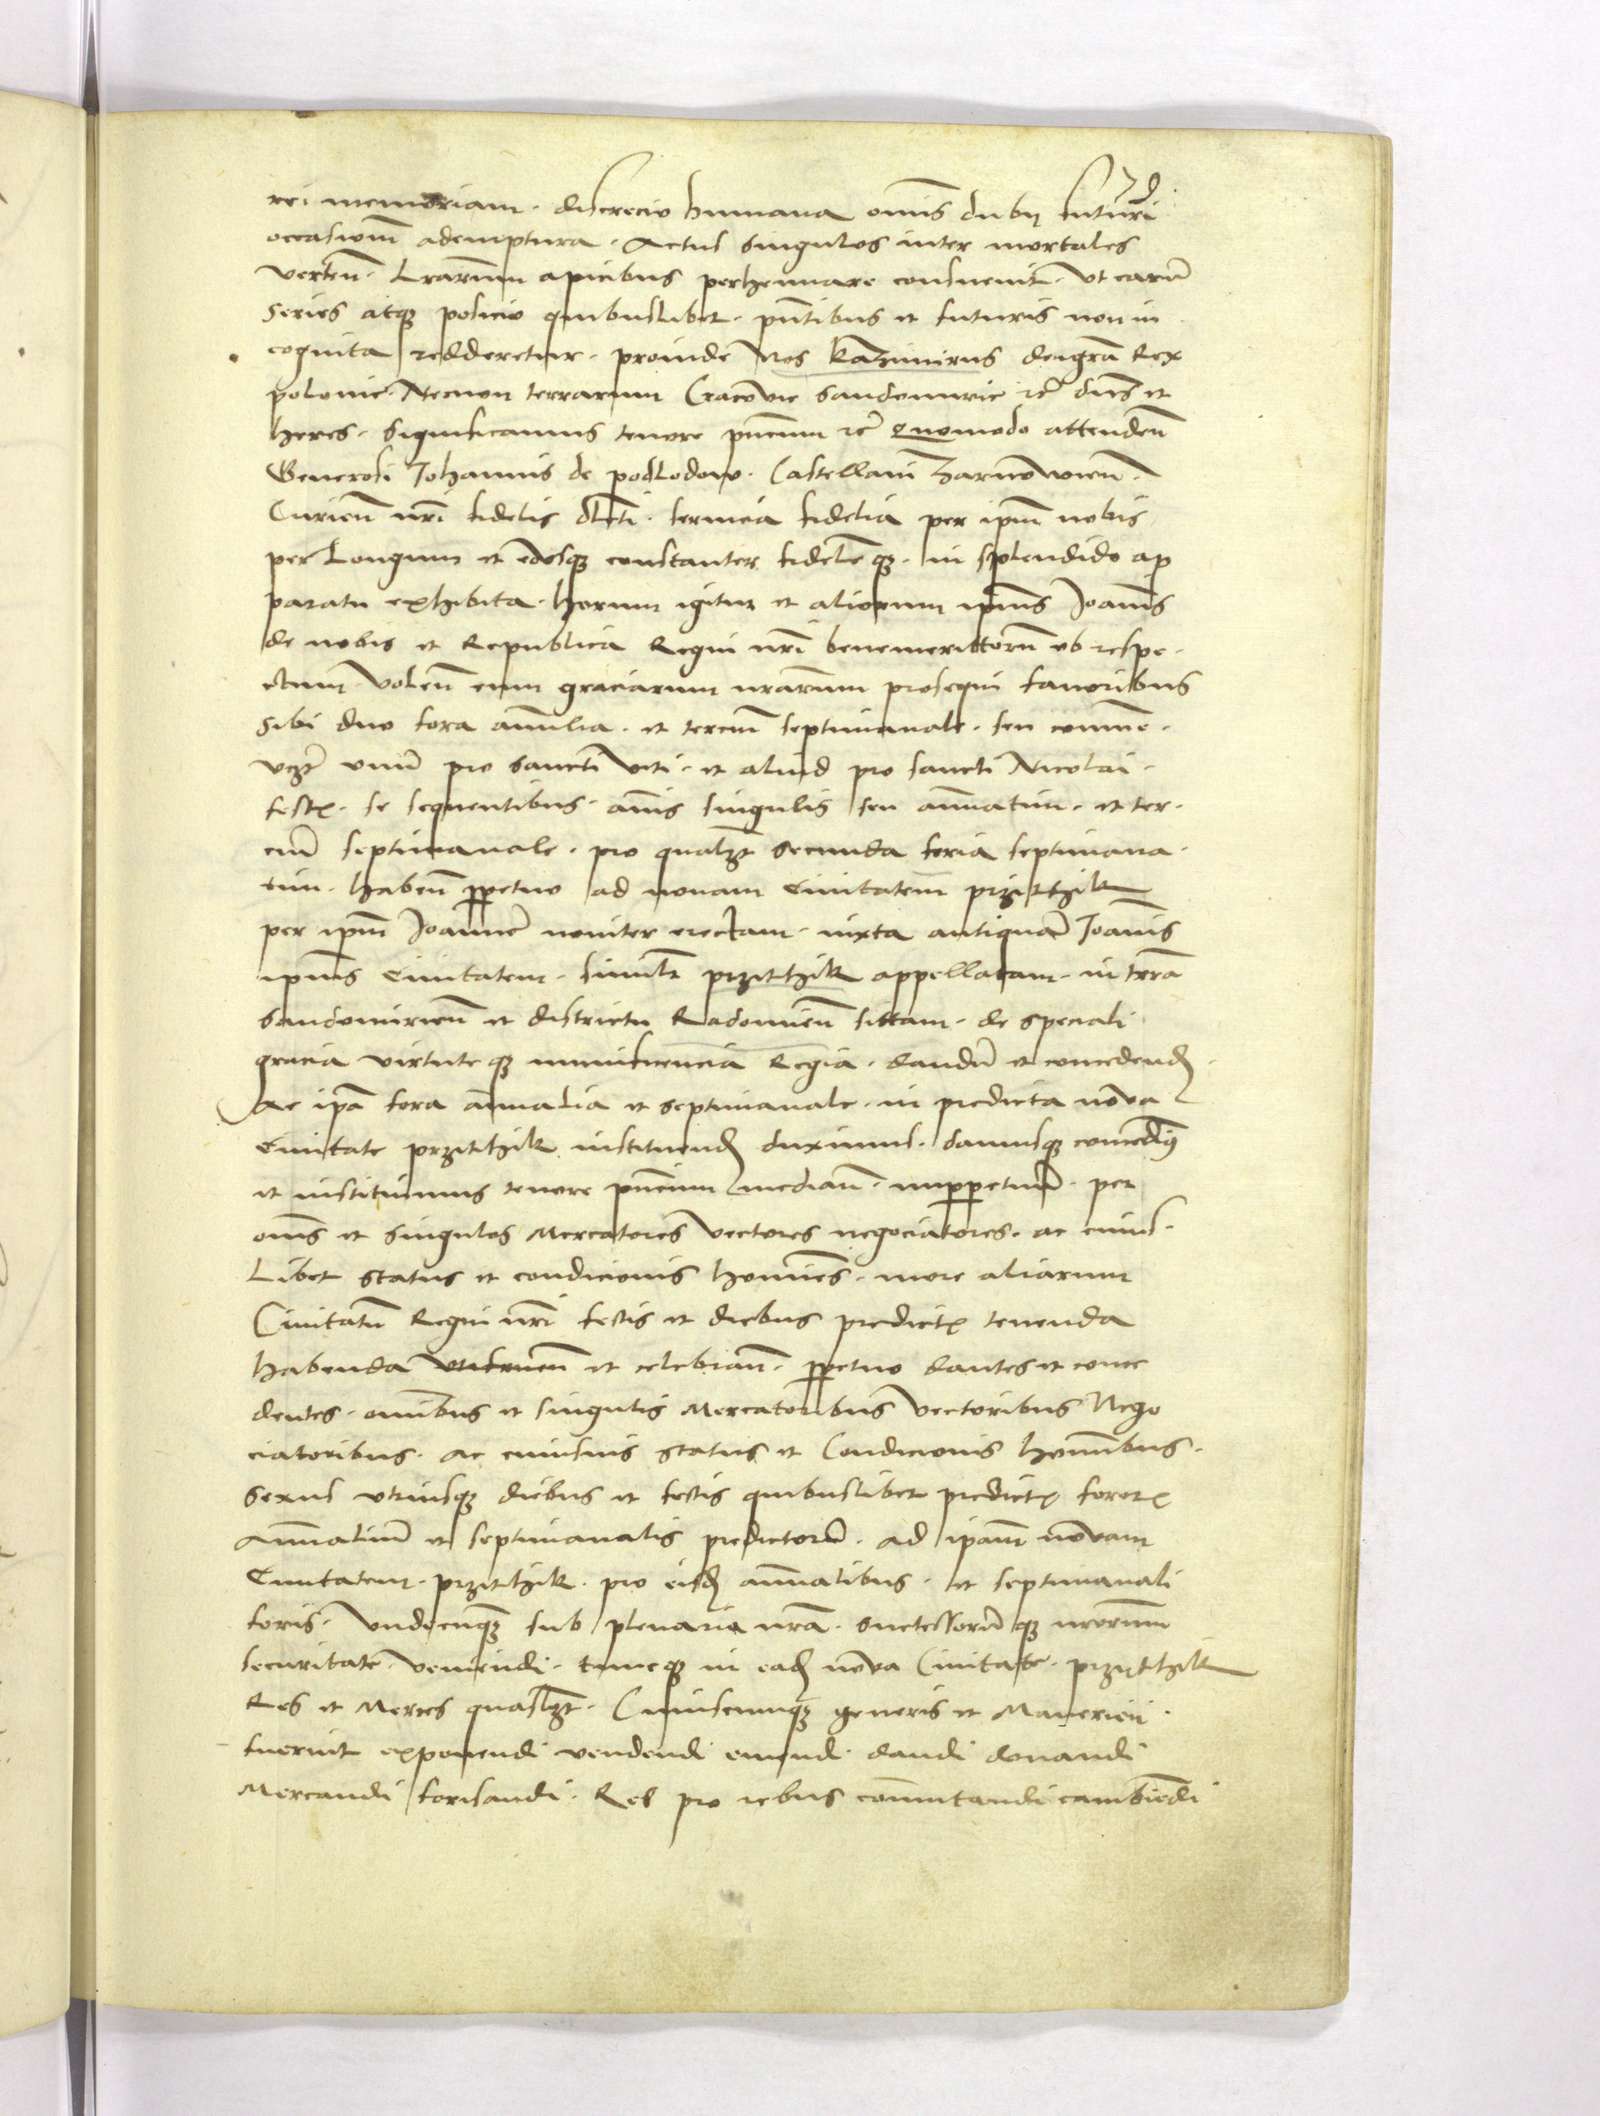 rei memoriam. discrecio humana omnis dubij futuri
occasionem ademptura. Actus singulos inter mortales
verten. Lrarum apicibus perhennare consuevit. Ut earum
series atq posicio quibuslibet. pntibus et futuris non in
cognita redderetur. proinde Nos kazimirus deigra Rex
polonie. Necnon terrarum Cracovie Sandomirie etc dns et
heres. significamus tenore pncium etc quomodo attenden
Generosi Johannis de podlodow. Castellani Zarnowien.
Curien nri fidelis dlcti. servicia fidelia per ipm nobis
per Longum et eousq constanter fideleq. in splendido ap
paratu exhibita. horum igitur et aliorum ipius Joanis
de nobis et Republica Regni nri benemerittorum ob respe-
ctum volen eum graciarum nrarum prosequi favoribus
sibi duo fora annalia. et tercium septimanale. seu comune.
vczt unum pro sancti viti. et aliud pro sancti Nicolai.
festis. se sequentibus. annis singulis seu annuatim. et ter-
cium septimanale. pro qualzt secunda feria septimana-
tim. haben ppetuo ad novam Civitatem przitthik
per ipm Joannem noviter erectam. iuxta antiquam Joanis
ipius Civitatem. similr przitthik appellatam. in terra
sandomirien et districtu Radomien sittam. de speciali
gracia virtute q munificencia Regia. dandum et concedend.
Ac ipa fora annualia et septimanale. in predicta nova
Civitate przitthik instituend duximus. damusq concedimus
et instituimus tenore pncium median. imppetuum. per
omes et singulos Mercatores vectores negociatores. ac cuius-
Libet status et condicionis homines. more aliarum
Civitatum Regni nri festis et diebus predictis tenenda
habenda utifruen et celebran. ppetuo dantes et conce
dentes. omibus et singulis Mercatoribus vectoribus Nego
ciatoribus. ac cuiusvis status et Condicionis hominibus.
sexus utriusq diebus et festis quibuslibet predictis fororum
Annalium et septimanalis predictorum. ad ipam novam
Civitatem. przitthik. pro eisd annalibus. et septimanali
foris. undecunq sub plenaria nra. successorum q nrorum
securitate veniendi. tuncq in ead nova Civitate. przythik
Res et Merces quaslzt. Cuiuscunq generis et Maneriei
fuerint exponendi vendendi emendi dandi donandi
Mercandi forisandi. Res pro rebus commutandi cambiendi